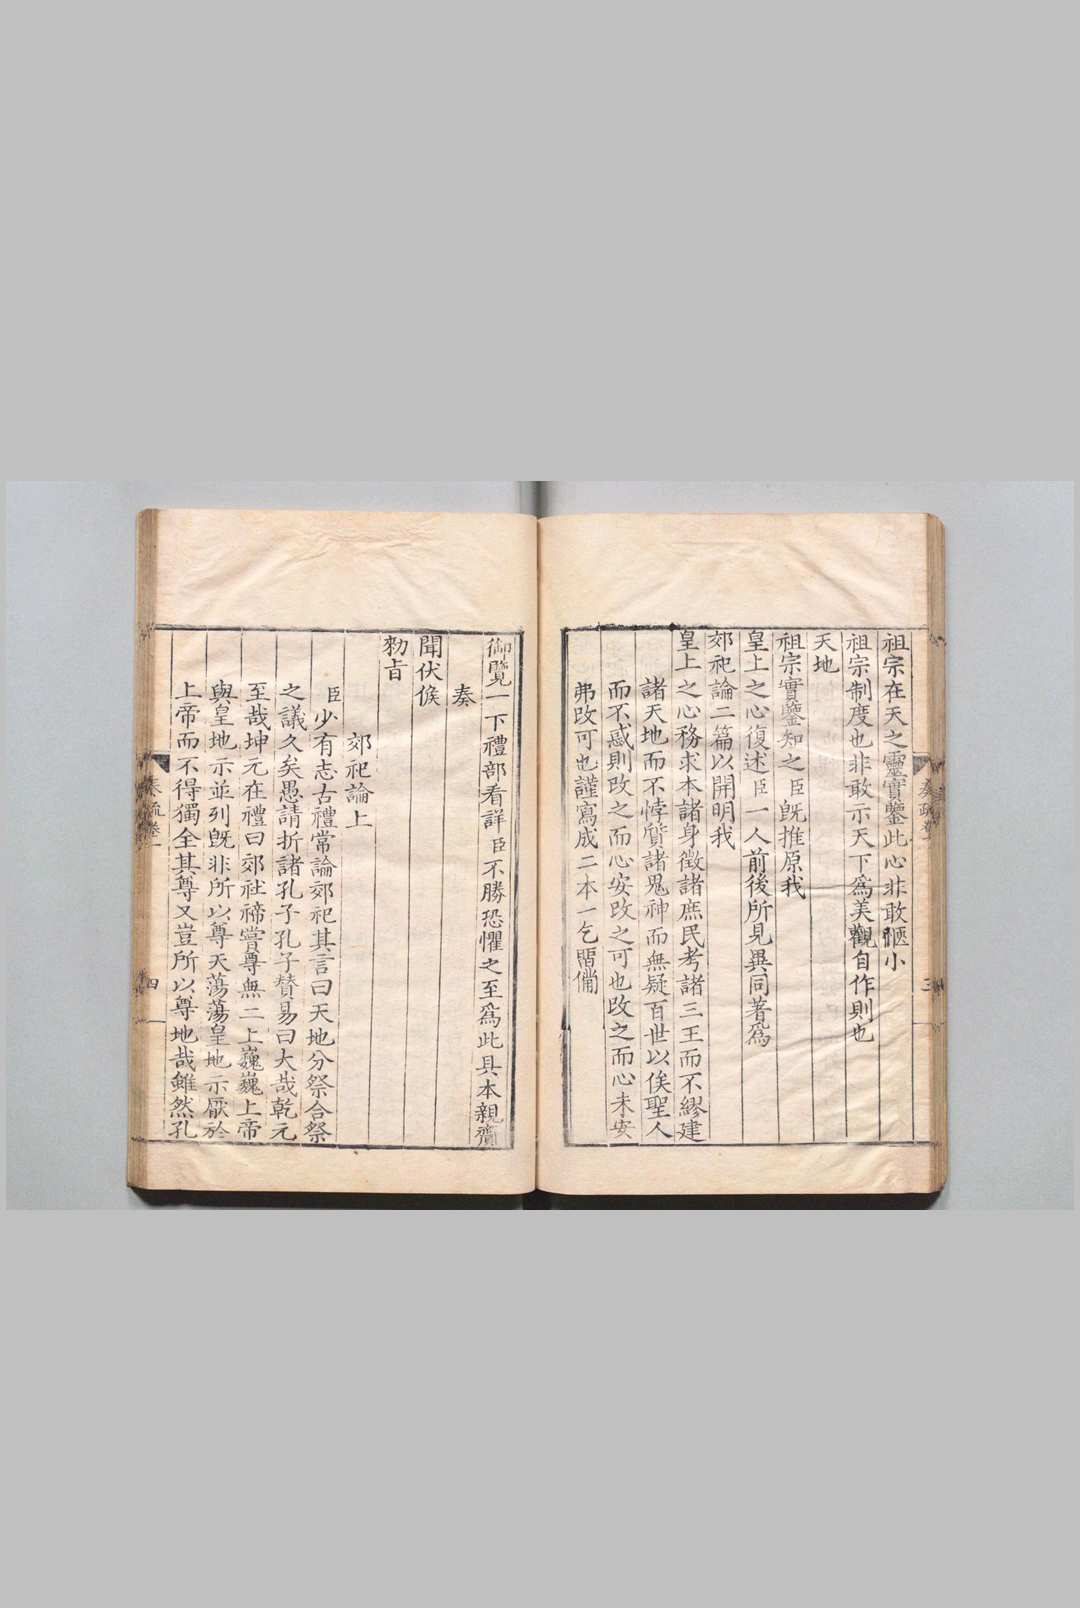 祖宗在天之靈實鑒此心非敢愜小
祖宗制度也非敢示天下爲美觀自作則也
天地
祖宗實鑒知之臣旣推原我
皇上之心復述臣一人前後所見異同著爲
郊祀論二篇以開明我
皇上之心務求本諸身徵諸庶民考諸三王而不繆建
諸天地而不悖質諸鬼神而無疑百世以俟聖人
而不惑則改之而心安改之可也改之而心未安
弗改可也謹寫成二本一乞畱備
奏疏卷一
三
御覽一下禮部看詳臣不勝恐懼之至爲此具本親齎
奏
聞伏候
勑旨
郊祀論上
臣少有志古禮常論郊祀其言曰天地分祭合祭
之議久矣愚請折諸孔子孔子贊易曰大哉乾元
至哉坤元在禮曰郊社禘嘗尊無二上巍巍上帝
與皇地示並列旣非所以尊天蕩蕩皇地示厭於
上帝而不得獨全其尊又豈所以尊地哉雖然孔
奏疏卷一
四